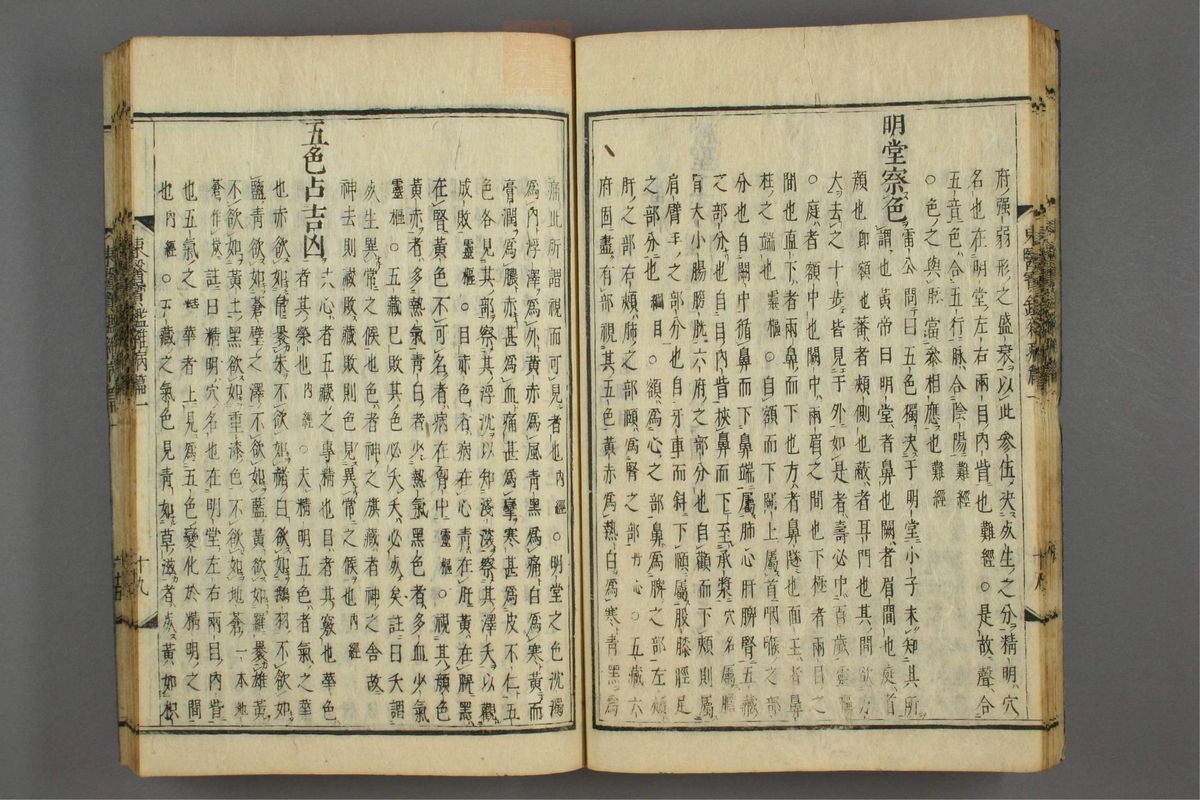 府强弱形之盛衰以此參伍决死生之分精明穴
名也在明堂左右兩目内眥也難經○是故聲合
五音色合五行脉合陰陽難經
○色之與脉當參相應也難經
明堂察色雷公問曰五色獨决于明堂小子未知其所
謂也黃帝曰明堂者鼻也闕者眉間也庭者
顔也卽額也蕃者頰側也蔽者耳門也其間欲方
大去之十步皆見于外如是者壽必中百歲靈樞
○庭者額中也闕中兩眉之間也下極者兩目之
間也直下者兩鼻而下也方者鼻隧也面王者鼻
柱之端也靈樞○自額而下闕上屬首咽喉之部
分也自闕中循鼻而下鼻端屬肺心肝脾腎五藏
之部分也自目内眥挾鼻而下至承漿穴名屬膽
胃大小腸膀胱六府之部分也自顴而下頰則屬
肩臂手之部分也自牙車而斜下頤屬股膝脛足
之部分也綱目○額爲心之部鼻爲脾之部左頰
肝之部右頰肺之部頤爲腎之部丹心○五藏六
府固盡有部視其五色黃赤爲熱白爲寒青黑爲
痛此所謂視而可見者也内經○明堂之色沈濁
爲内浮澤爲外黃赤爲風青黑爲痛白爲寒黃而
膏潤爲膿赤甚爲血痛甚爲攣寒甚爲皮不仁五
色各見其部察其浮沈以知淺深察其澤夭以觀
成敗靈樞○目赤色者病在心青在肝黃在脾黑
在腎黃色不可名者病在胷中靈樞○視其顔色
黃赤者多熱氣青白者少熱氣黑色者多血少氣
靈樞○五藏已敗其色必夭夭必死矣註曰夭謂
死生異常之候也色者神之旗藏者神之舍故
神去則藏敗藏敗則色見異常之候也内經
五色占吉凶六心者五藏之專精也目者其竅也華色
者其榮也内經○夫精明五色者氣之華
也赤欲如帛裹朱不欲如赭白欲如鵝羽不欲如
鹽青欲如蒼璧之澤不欲如藍黃欲如羅裹雄黃
不欲如黃土黑欲如重漆色不欲如地蒼一本地
蒼作炭註曰精明穴名也在明堂左右兩目内眥
也五氣之精華者上見爲五色變化於精明之間
也内經○五藏之氣色見青如草滋者死黃如枳
東醫寶鑑雜病篇一
十九